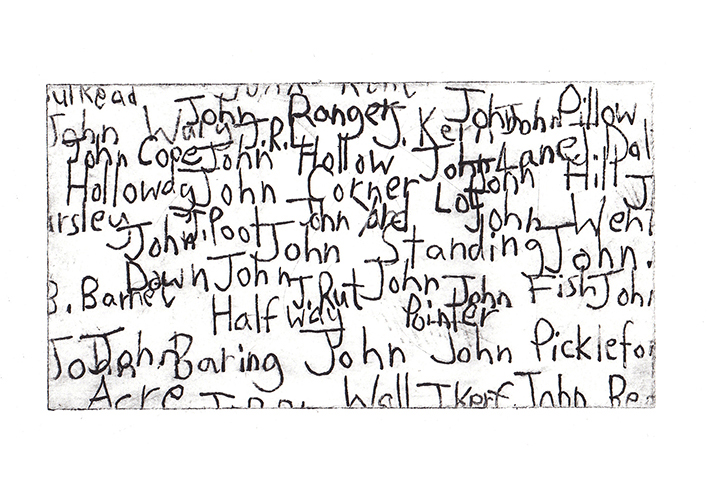 ulkead
John Ranger John John Pillow
John Wary J.R.L J. Ker
John Cope John Hollow John Lane J. Dal
Holloway John Corner Lot John Hilt J
arsley J. Poot John John Weht
John John Standing John.
Down John J. Rut John John Fish John
B. Barnet Halfway Pointer
John Baring John John Picklefor
Acre Wall J Kerf John Be